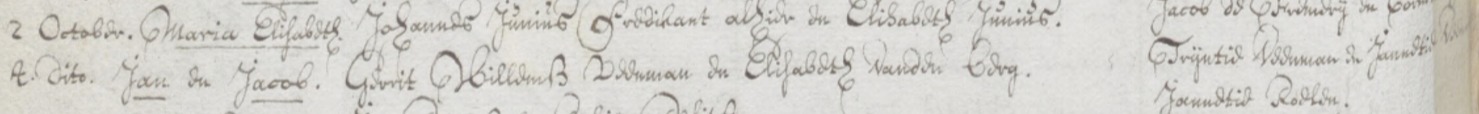 2 October. Maria Elisabeth. Johannes Junius Predikant alhier en Elisabeth Junius. Jacob de
4. Dito. Jan en Jacob. Gerrit Willemss Veenman en Elisabeth vanden Berg. Trijntie Veenman en Janneti
Jannetie Roelen.